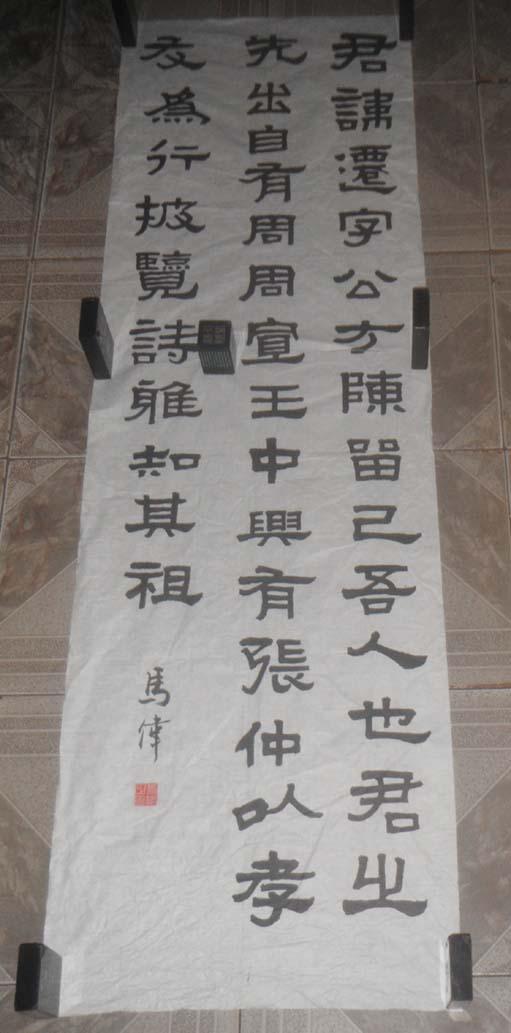 君諱遷字公方陳留己吾人也君之
先出自有周周宣王中興有張仲以孝
友為行披覽詩雅知其祖
馬偉